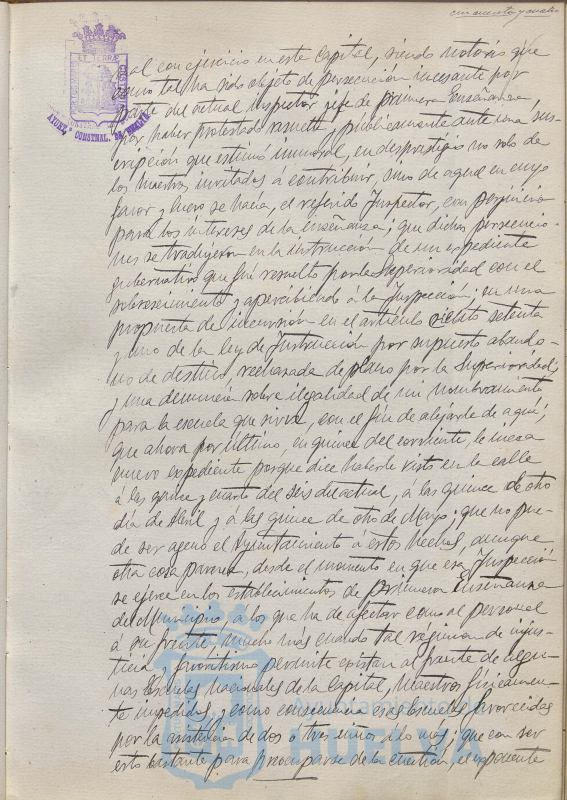 cincuenta y cuatro
al con ejercicio en esta Capital, siendo notorio que
como tal ha sido objeto de persecución incesante por
parte del actual Inspector jefe de primera Enseñanza,
por haber protestado razonada y públicamente ante una sus-
cripción que estimó inmoral, en desprestigio no solo de
los Maestros invitados á contribuir, sino de aquel en cuyo
favor y lucro se hacía, el referido Inspector, con perjuicio
para los intereses de la enseñanza; que dichas persecucio-
nes se tradujeron en la instrucción de un expediente
gubernativo que fué resuelto por la Superioridad con el
sobreseimiento y apercibiendo á la Inspección; en una
propuesta de incursión en el artículo ciento setenta
y uno de la ley de Instrucción por supuesto abando-
no de destino, rechazada de plano por la Superioridad;
y una denuncia sobre ilegalidad de mi nombramiento
para la escuela que sirvo, con el fin de alejarle de aquí;
que ahora por último, en quince del corriente, le incoa
nuevo expediente, porque dice haberle visto en la calle
á las quince y cuarto del seis del actual, á las quince de otro
día de Abril y á las quince de otro de Mayo; que no pue-
de ser ageno el Ayuntamiento á estos hechos, aunque
otra cosa parezca, desde el momento en que esa Inspección
se ejerce en los establecimientos de primera Enseñanza
del Municipio, á los que ha de afectar como al personal
á su frente, mucho más cuando tal régimen de injus-
ticia y favoritismo permite existan al frente de algu-
nas Escuelas Nacionales de la Capital, Maestros físicamen-
te impedidos, y como consecuencia esas Escuelas favorecidas
por la asistencia de dos ó tres niños ído más; que con ser
esto bastante para preocuparse de la cuestión, el exponente
AYUNT. CONSTNAL. DE HUELVA
Ayuntamiento de
HUELVA